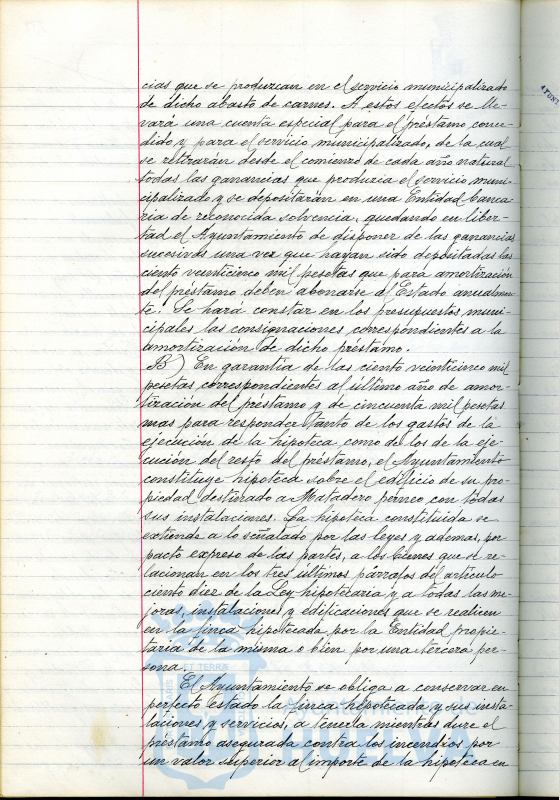 cias que se produzcan en el servicio municipalizado
de dicho abasto de carnes. A estos efectos se lle-
vará una cuenta especial para el préstamo conce-
dido y para el servicio municipalizado, de la cual
se retirarán desde el comienzo de cada año natural
todas las ganancias que produzca el servicio muni-
cipalizado y se depositarán en una Entidad banca-
ria de reconocida solvencia, quedando en liber-
tad el Ayuntamiento de disponer de las ganancias
sucesivas una vez que hayan sido depositadas las
ciento veinticinco mil pesetas que para amortización
del préstamo deben abonarse al Estado anualmen-
te. Se hará constar en los presupuestos muni-
cipales las consignaciones correspondientes a la
amortización de dicho préstamo.
B) En garantía de las ciento veinticinco mil
pesetas correspondientes al último año de amor-
tización del préstamo y de cincuenta mil pesetas
mas para responder tanto de los gastos de la
ejecución de la hipoteca como de los de la eje-
cución del resto del préstamo, el Ayuntamiento
constituye hipoteca sobre el edificio de su pro-
piedad destinado a Matadero público con todas
sus instalaciones. La hipoteca constituida se
extiende a lo señalado por las leyes y ademas, por
pacto expreso de las partes, a los bienes que se re-
lacionan en los tres últimos párrafos del artículo
ciento diez de la Ley hipotecaria y a todas las me-
joras, instalaciones y edificaciones que se realicen
en la finca hipotecada por la Entidad propie-
taria de la misma o bien por una tercera per-
sona.
El Ayuntamiento se obliga a conservar en
perfecto estado la finca hipotecada y sus insta-
laciones y servicios, a tenerla mientras dure el
préstamo asegurada contra los incendios por
un valor superior al importe de la hipoteca en
ET TERRÆ